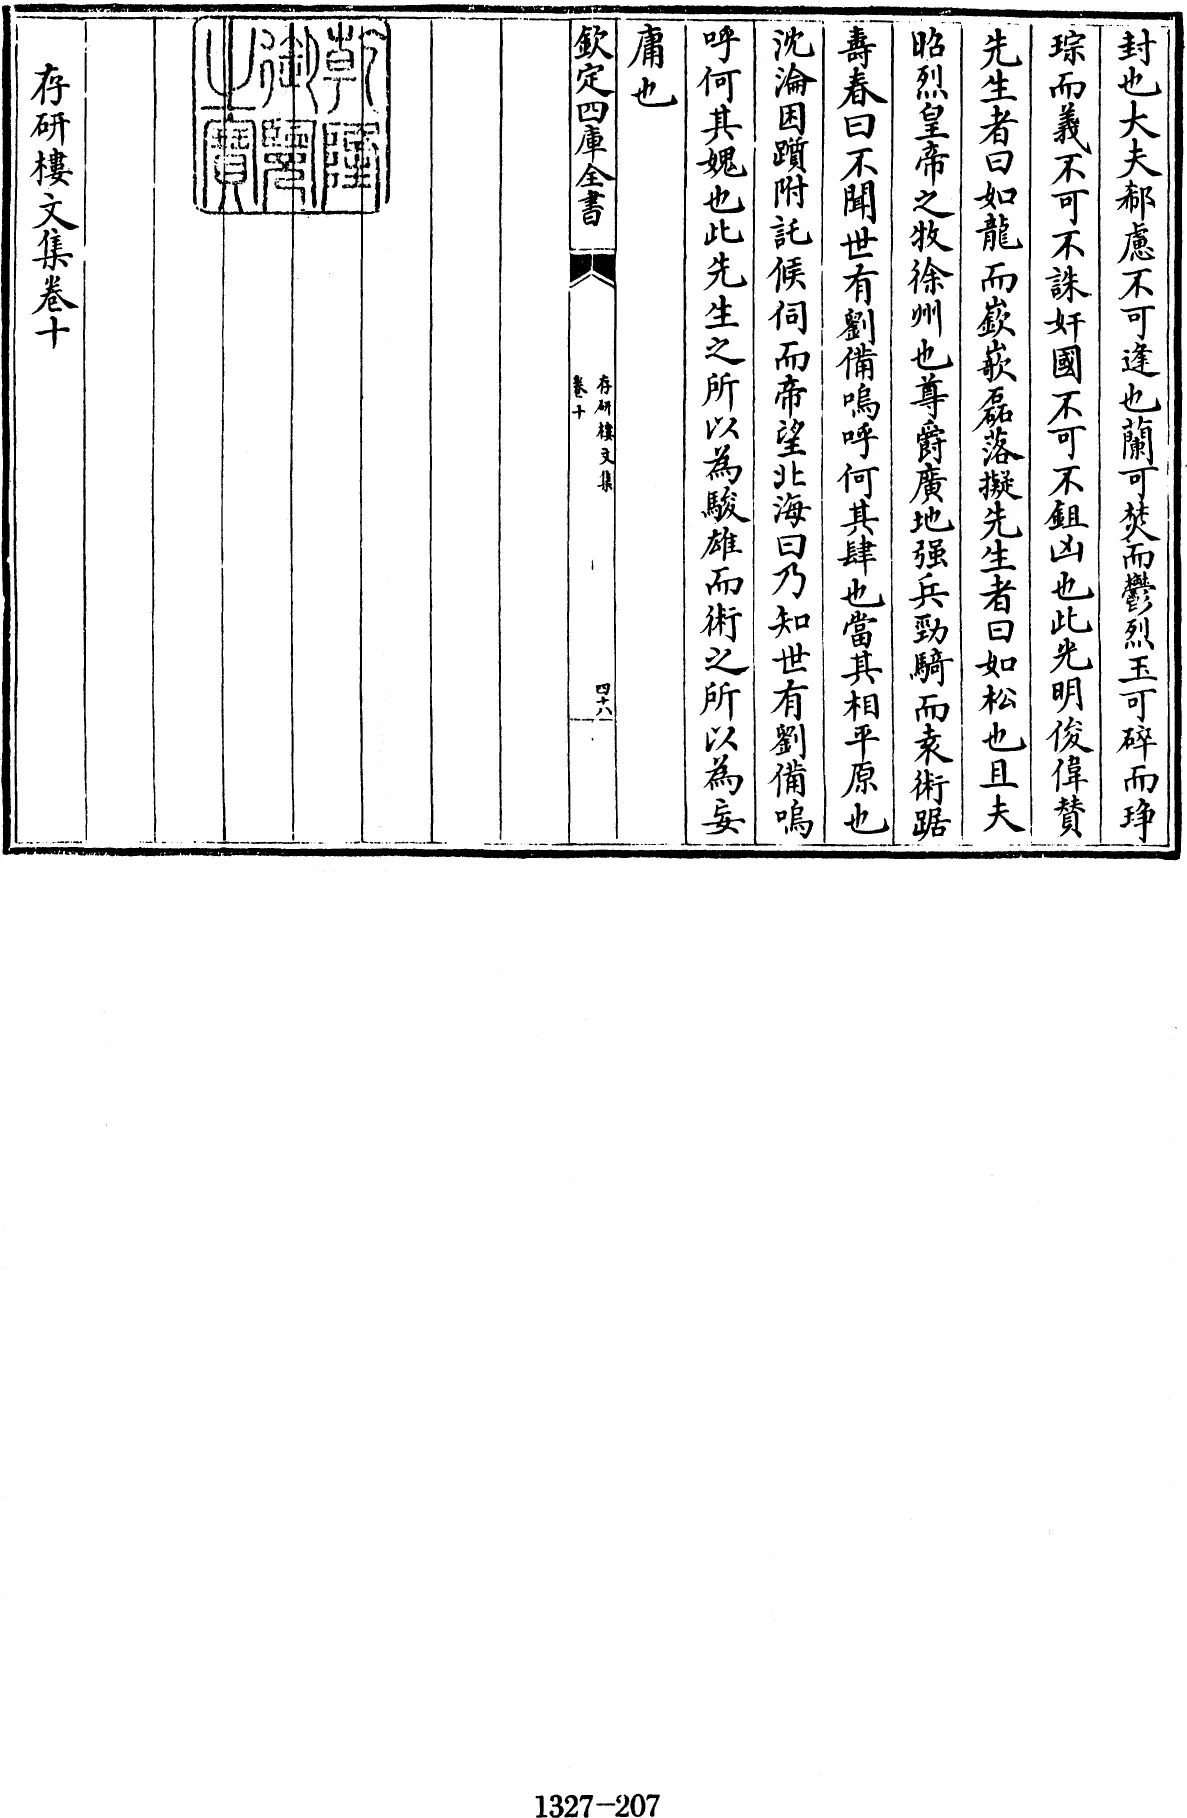 封也大夫郗慮不可逢也蘭可焚而鬱烈玉可碎而琤
琮而義不可不誅奸國不可不鉏凶也此光明俊偉贊
先生者曰如龍而嶔嶔磊落擬先生者曰如松也且夫
昭烈皇帝之牧徐州也尊爵廣地强兵勁騎而袁術踞
壽春曰不聞世有劉備嗚呼何其肆也當其相平原也
沈淪困躓附託候伺而帝望北海曰乃知世有劉備嗚
呼何其媿也此先生之所以為駿雄而術之所以為妄
庸也
欽定四庫全書
存研樓文集
卷十
四十八
乾隆
御覽
之寶
存研樓文集卷十
1327-207